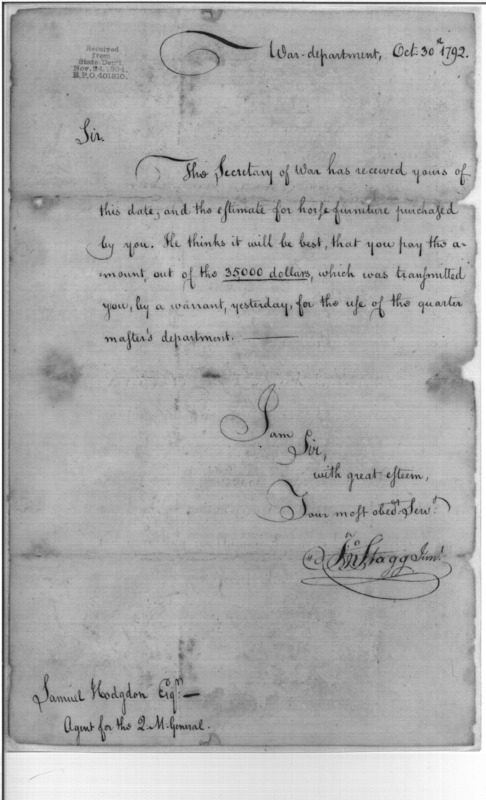 Received
from
State Dep't.
Nov. 24, 1904.
R.P.O. 401310.
War-department, Oct. 30th 1792.
Sir.
The Secretary of War has received yours of
this date, and the eſtimate for horſe furniture purchased
by you. He thinks it will be best, that you pay the a-
mount, out of the 35000 dollars, which was tranſmitted
you, by a warrant, yesterday, for the uſe of the quarter
maſter's department.
I am
Sir,
with great eſteem,
Your moſt obedt. Servt.
Jno Stagg Junr.
Samuel Hodgdon Esqr.—
Agent for the Q. M. General.